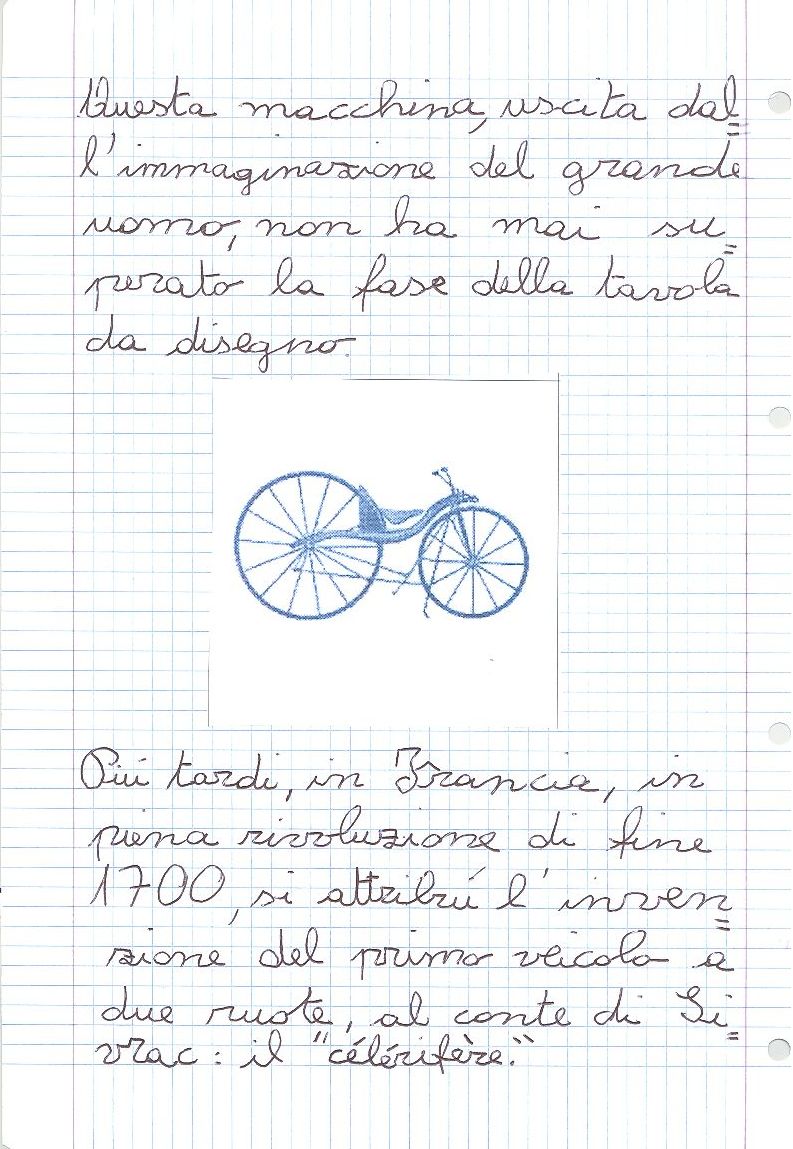 Questa macchina, uscita dal=
l'immaginazione del grande
uomo, non ha mai su=
perato la fase della tavola
da disegno.
Piú tardi, in Francia, in
piena rivoluzione di fine
1700, si attribú l'inven=
zione del primo veicolo a
due ruote, al conte di Si=
vrac: il "célérifère."